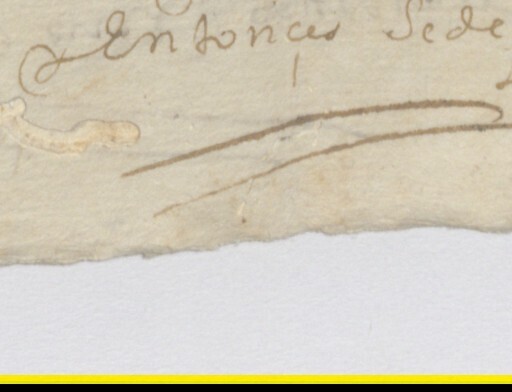 Entonçes Sede